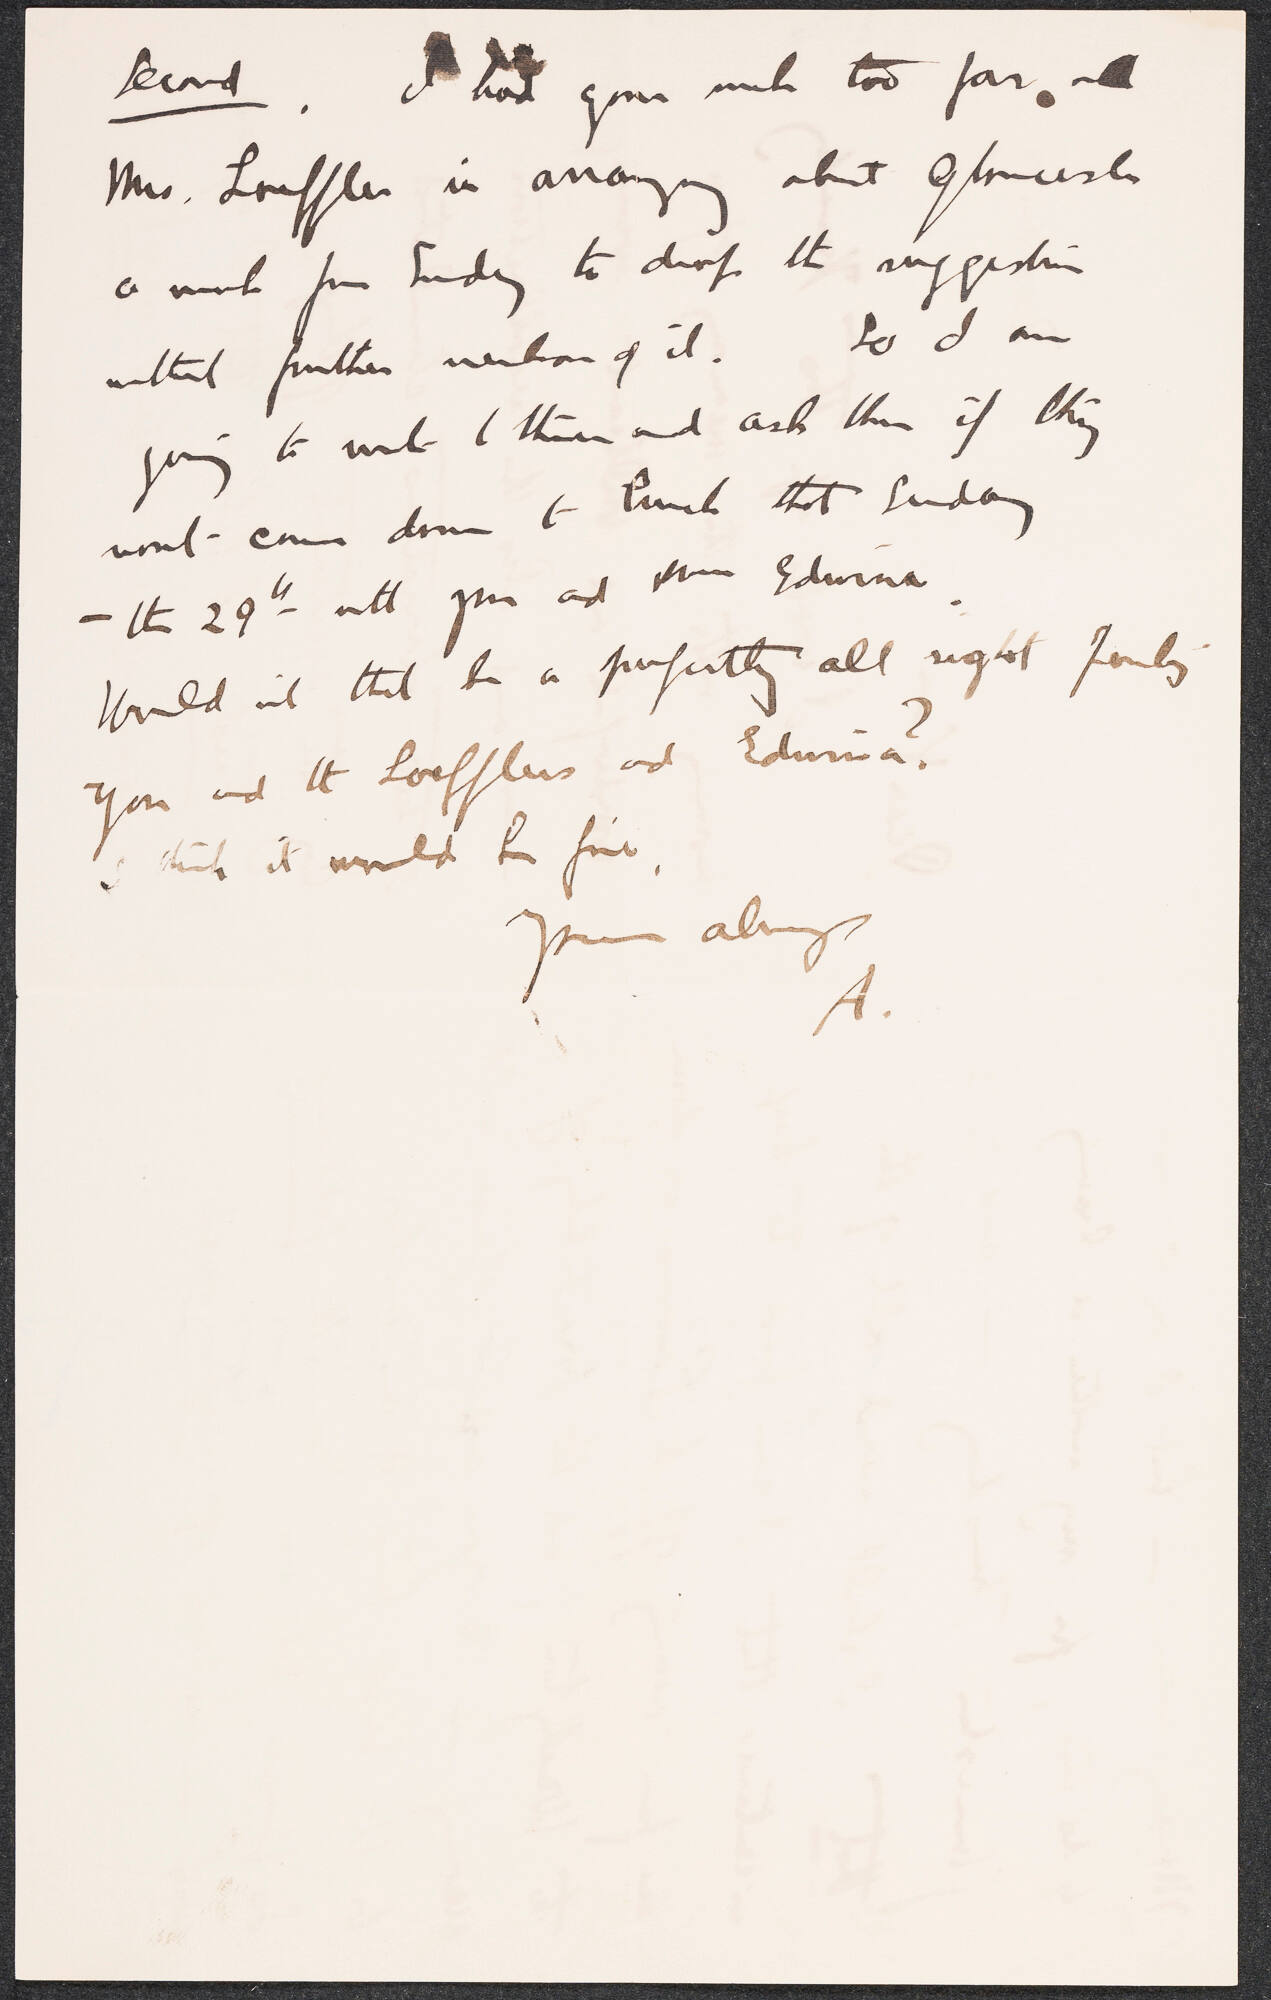 Second. I had gone much too far with
Mrs. Loeffler in arranging about Gloucester
a week from Sunday to drop the suggestion
without further mention of it. So I am
going to write to them and ask them if they
wont come down to lunch that Sunday
– the 29th – with you and Edwina.
Would not that be a perfectly all right family
you and the Loefflers and Edwina?
I think it would be fine.
Yours always
A.